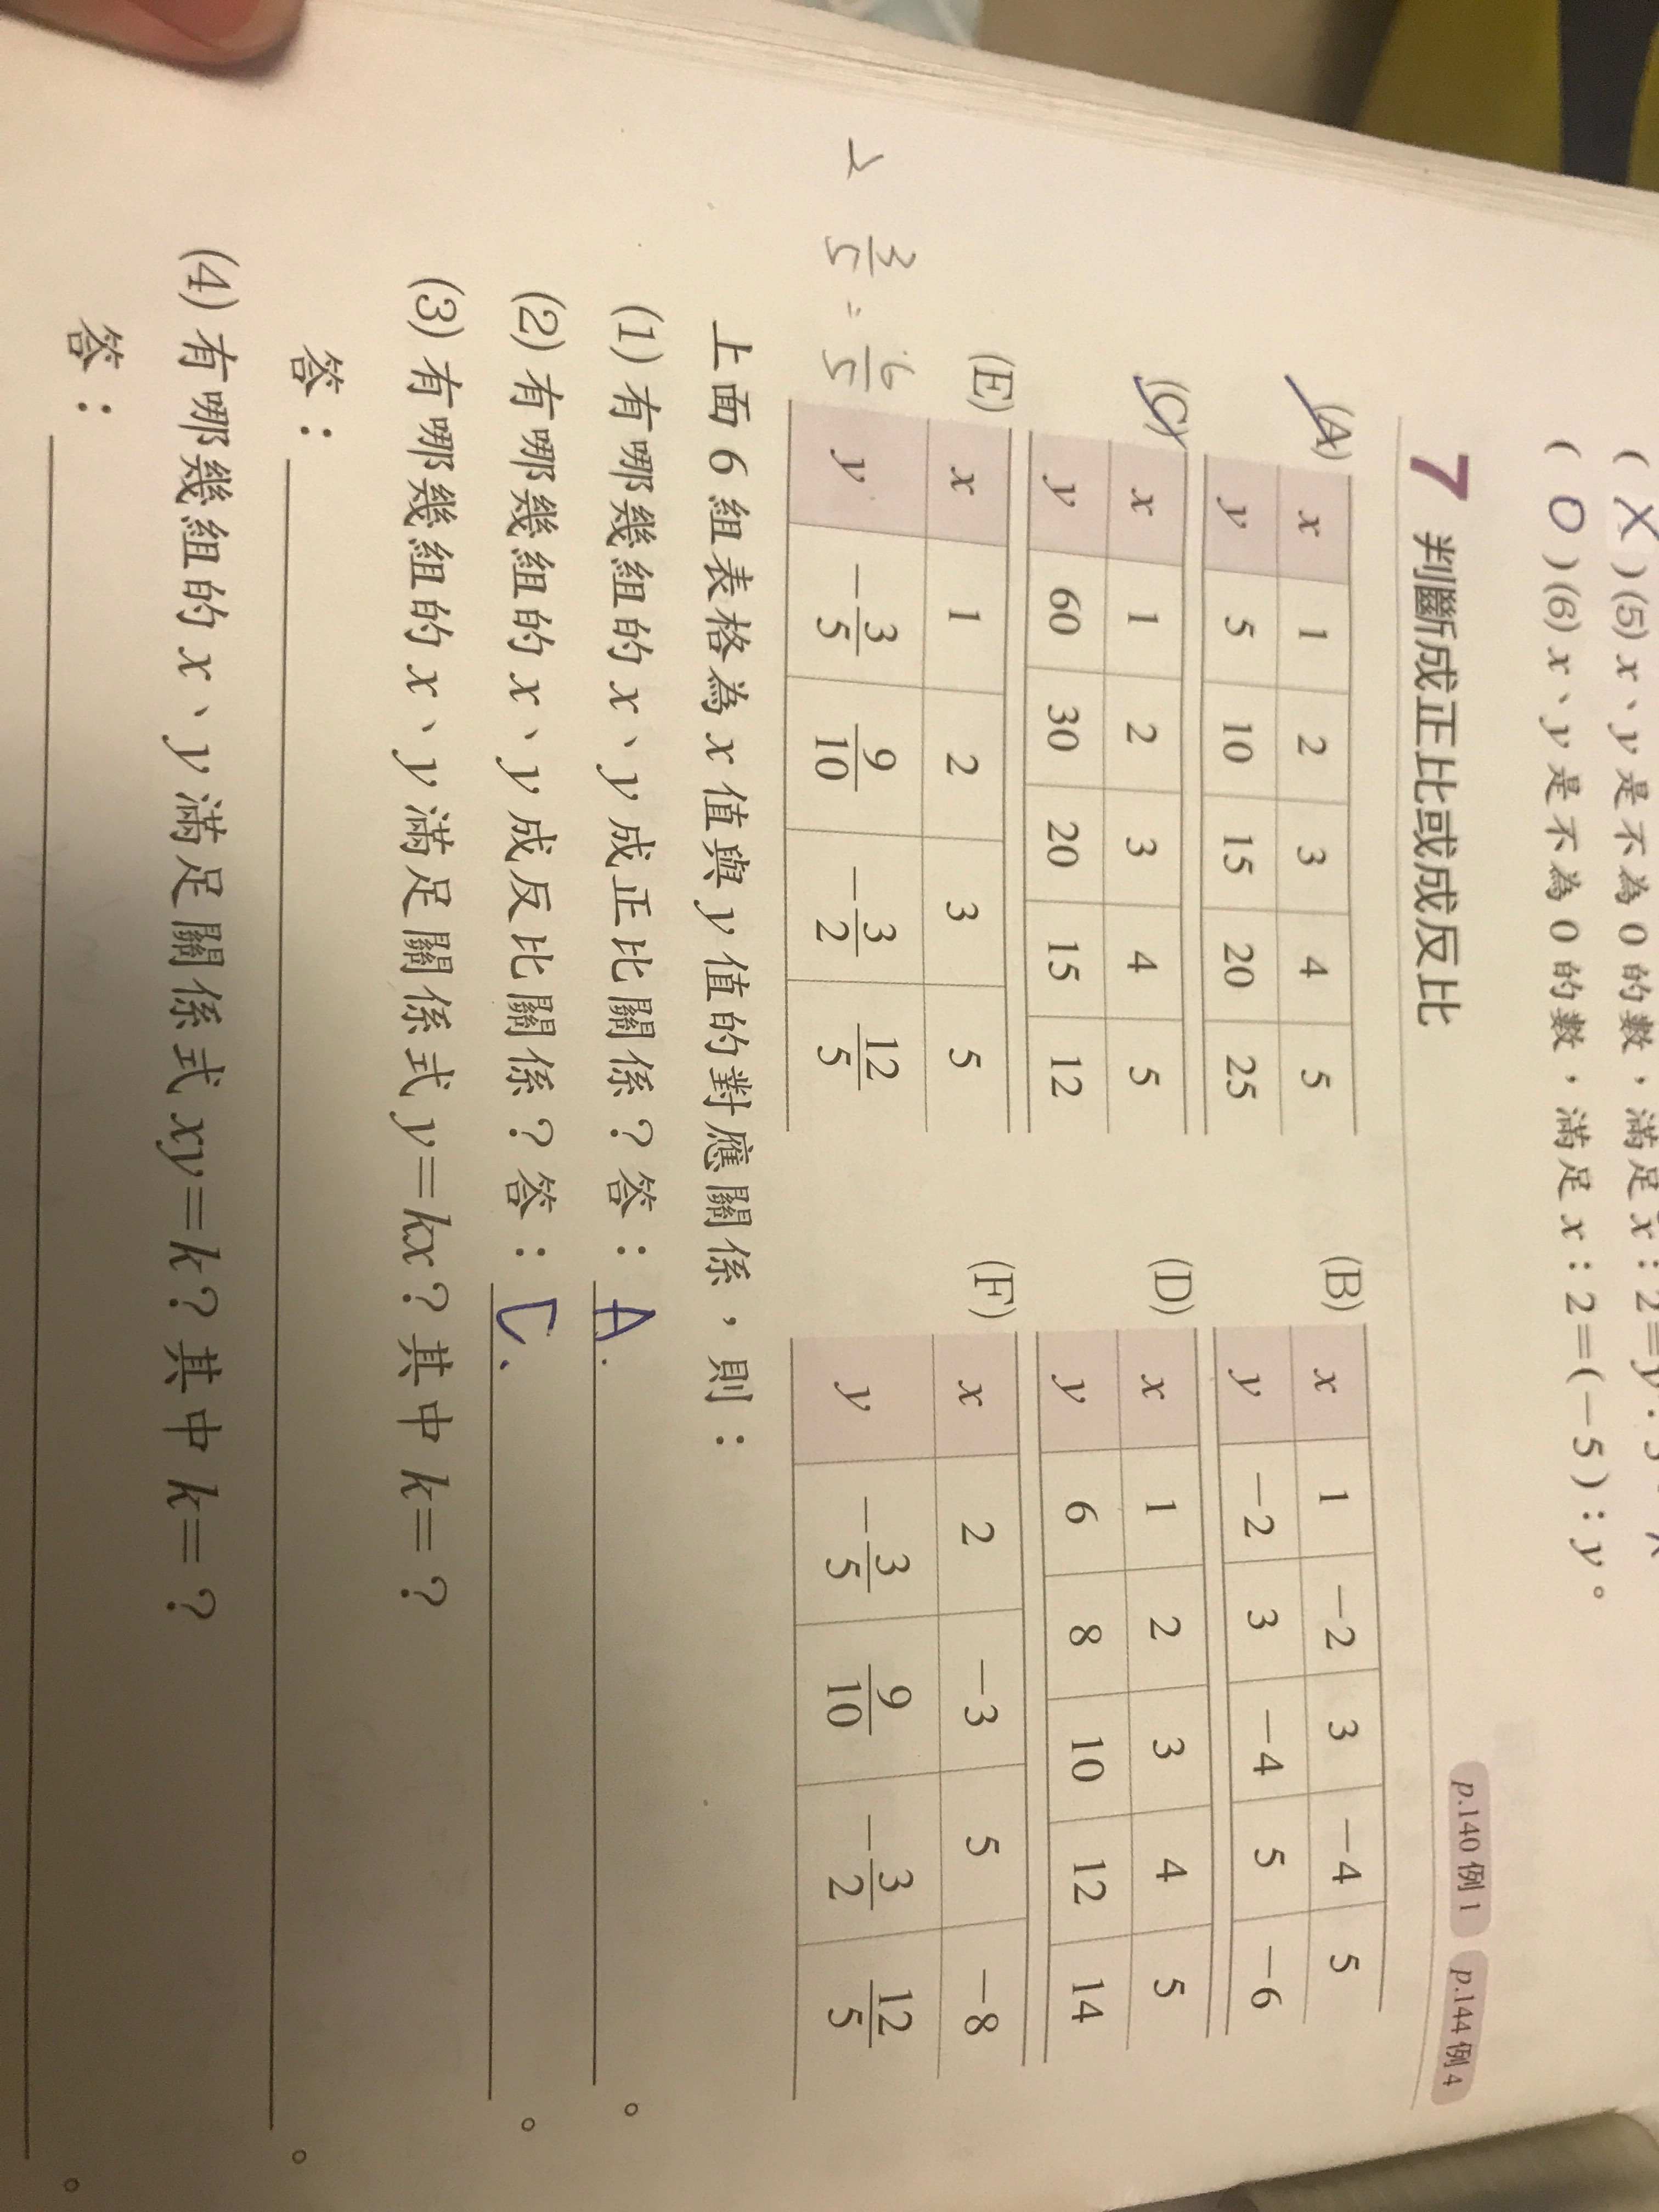 ( X )(5) x、y 是不為 0 的數，滿足 x：2=y：
( O )(6) x、y 是不為 0 的數，滿足 x：2=(−5)：y。
7 判斷成正比或成反比 p.140 例 1 p.144 例 4
(A)
x 1 2 3 4 5
y 5 10 15 20 25
(B)
x 1 −2 3 −4 5
y −2 3 −4 5 −6
(C)
x 1 2 3 4 5
y 60 30 20 15 12
(D)
x 1 2 3 4 5
y 6 8 10 12 14
(E)
x 1 2 3 5
y −3/5 9/10 −3/2 12/5
(F)
x 2 −3 5 −8
y −3/5 9/10 −3/2 12/5
3/5 = 6/5
上面 6 組表格為 x 值與 y 值的對應關係，則：
(1) 有哪幾組的 x、y 成正比關係？答：A. 。
(2) 有哪幾組的 x、y 成反比關係？答：C、 。
(3) 有哪幾組的 x、y 滿足關係式 y=kx？其中 k=？
答： 。
(4) 有哪幾組的 x、y 滿足關係式 xy=k？其中 k=？
答： 。